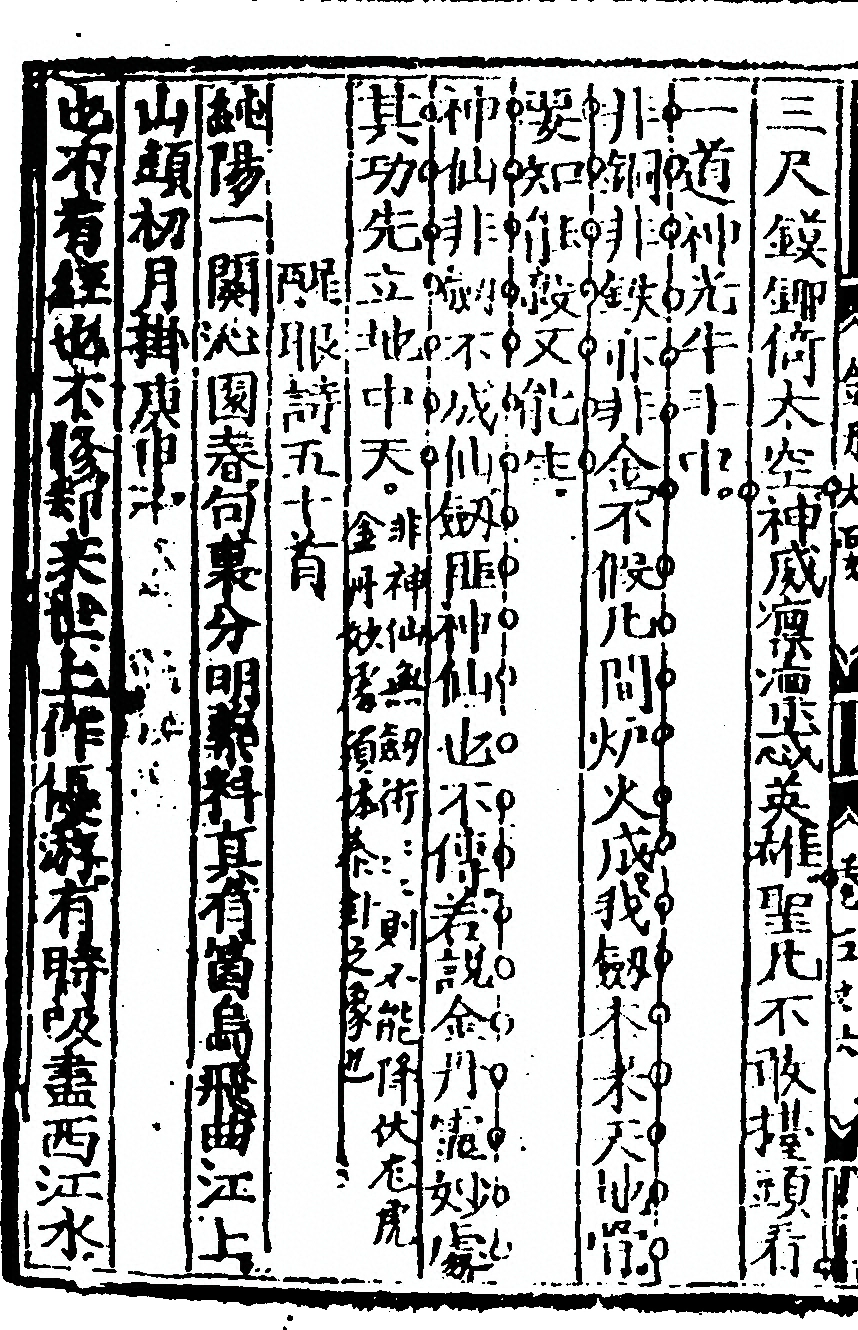 三尺鏌鎁倚太空神威凛凛懾英雄聖凡不敢擡頭看
一道神光牛斗中
非銅非鉄亦非金不假凡間炉火成我劔本来天地骨
要知能殺又能生
神仙非劔不成仙劔非神仙也不傳若説金丹靈妙處
其功先立地中天
非神仙無劔術〻〻則不能降伏龙虎
金丹妙處須体泰卦之象也
醒眼詩五十首
純陽一闋沁園春句裏分明藥料真有箇烏飛曲江上
山頭初月掛庚申
也不看經也不修却来世上作優游有時吸盡西江水